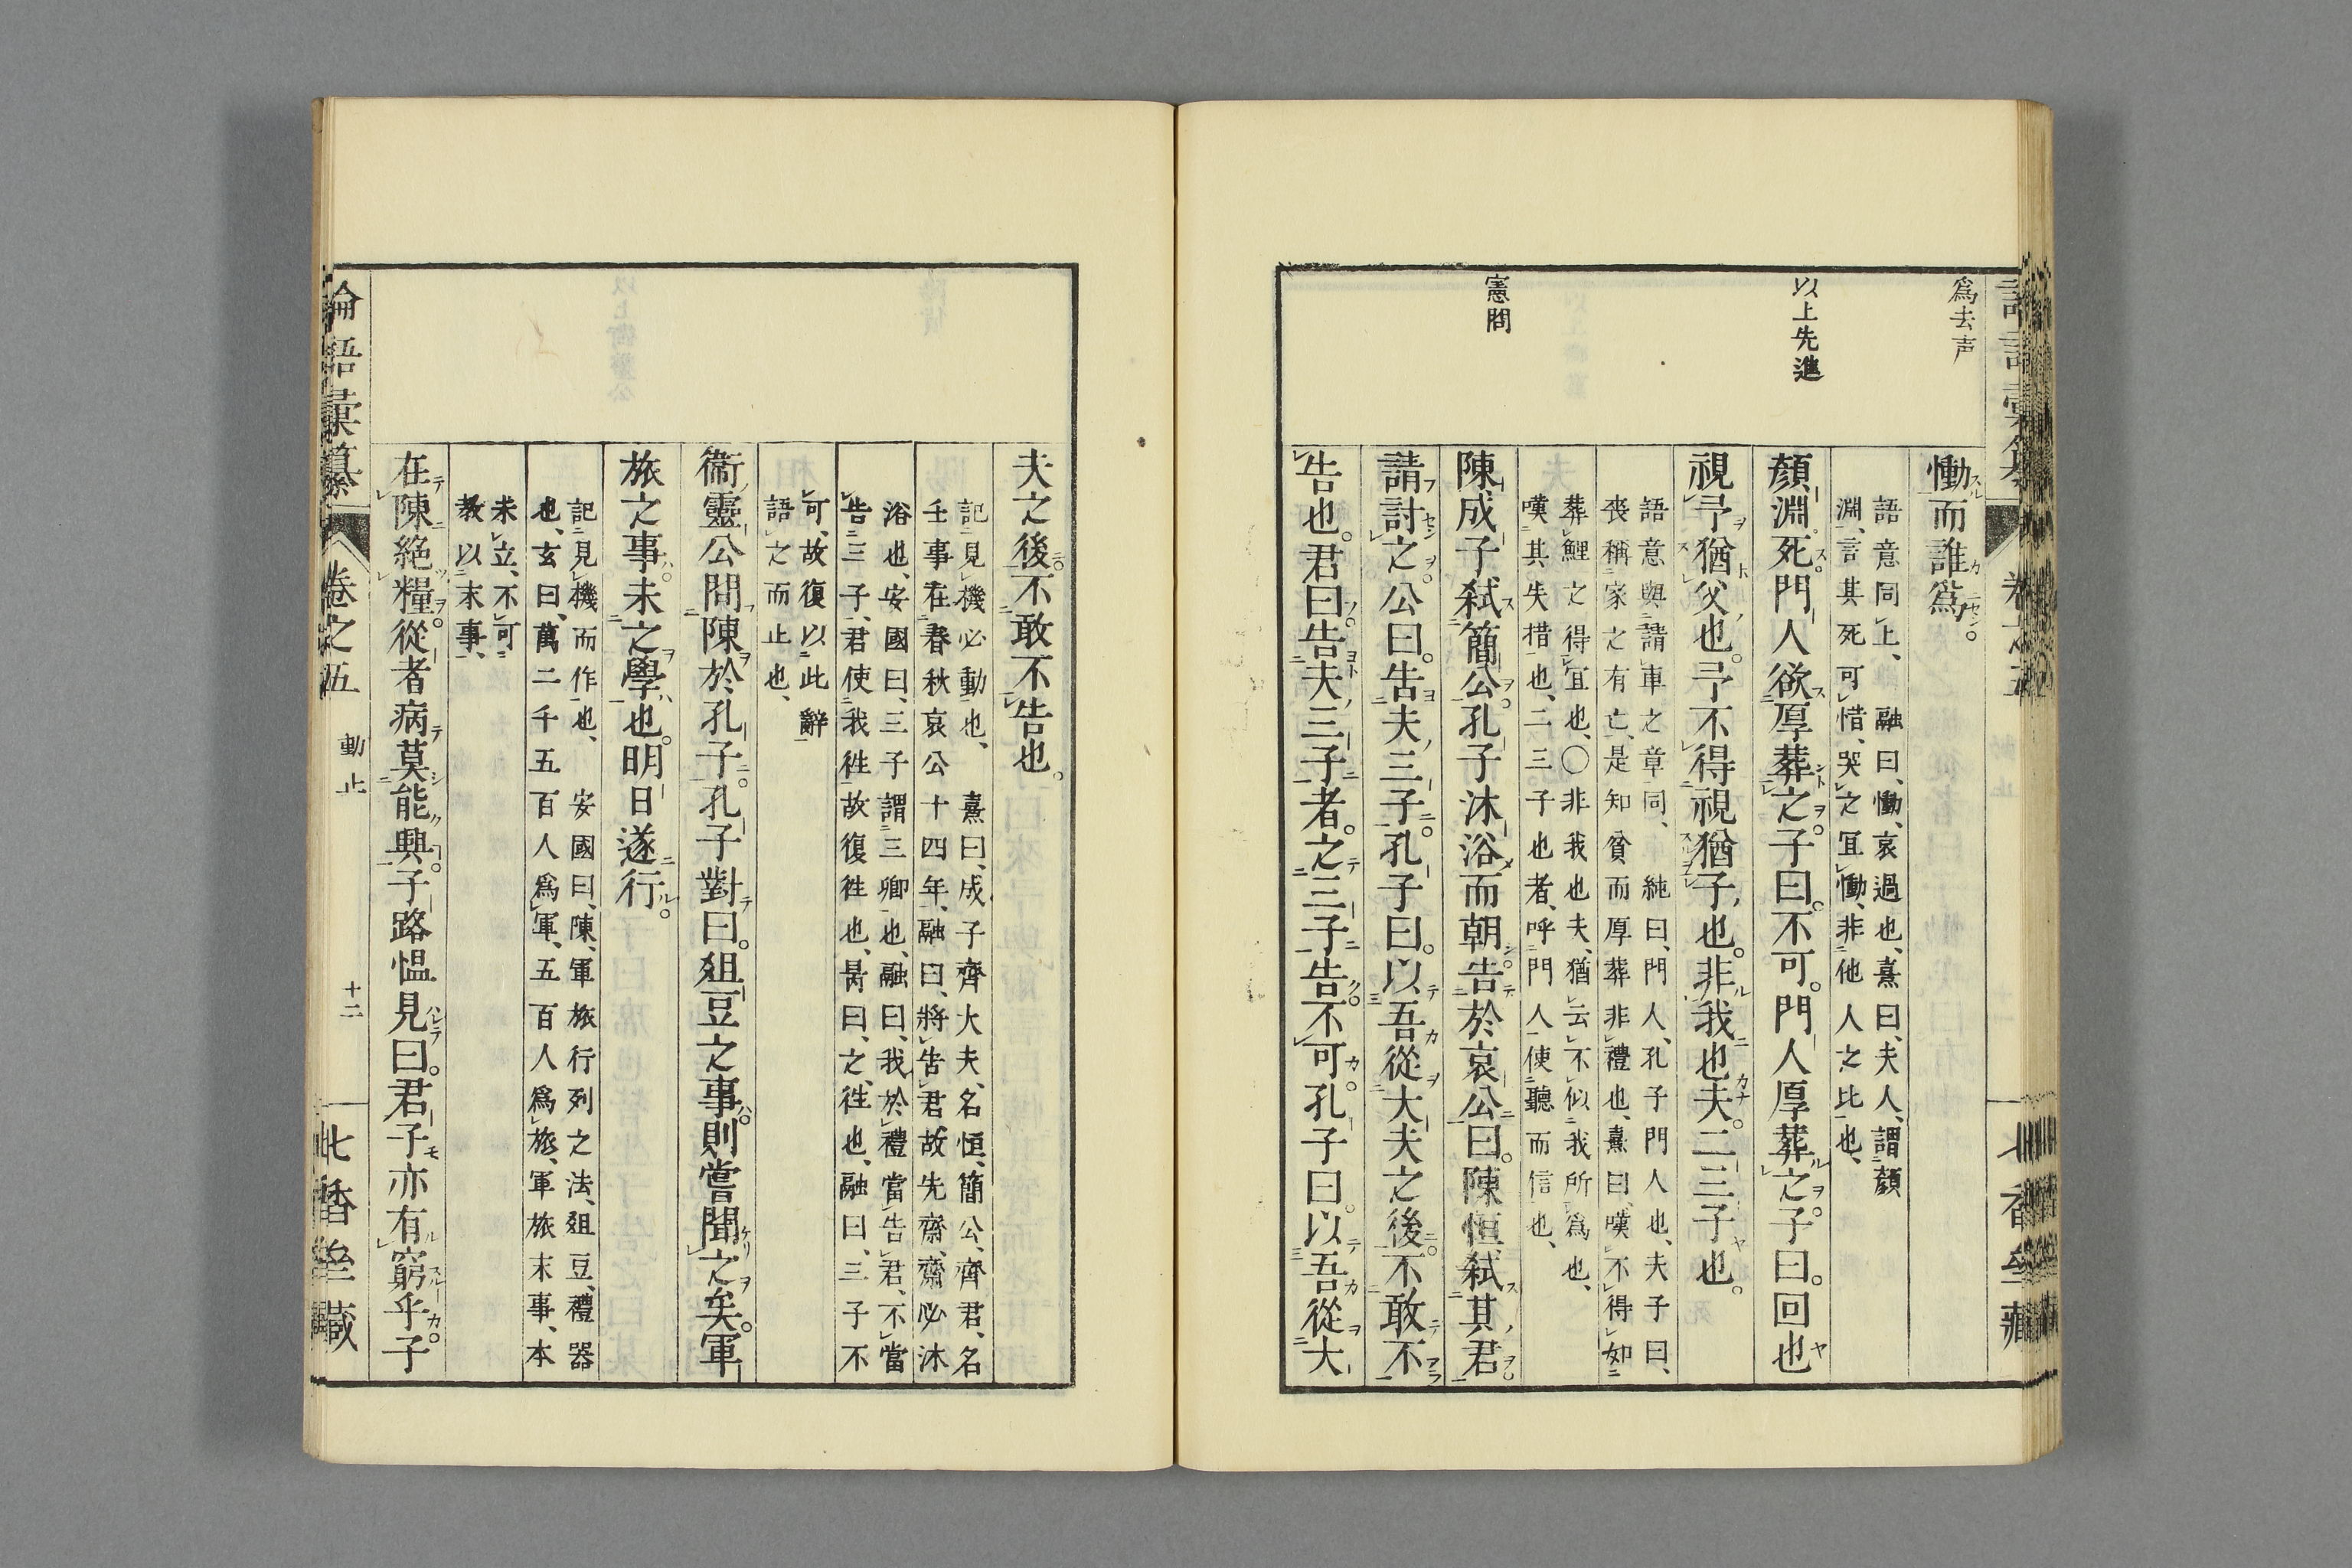 爲去声
以上先進
憲問
慟而誰爲
語意同上、融曰、慟、哀過也、熹曰、夫人、謂顏
淵、言其死可惜、哭之宜慟、非他人之比也、
顏淵死門人欲厚葬之子曰不可門人厚葬之子曰回也
視予猶父也予不得視猶子也非我也夫二三子也
語意與請車之章同、純曰、門人、孔子門人也、夫子曰、
喪稱家之有亡、是知貧而厚葬非禮也、熹曰、嘆不得如
葬鯉之得宜也、○非我也夫、猶云不似我所爲也、
嘆其失措也、二三子也者、呼門人使聽而信也、
陳成子弑簡公孔子沐浴而朝告於哀公曰陳恒弑其君
請討之公曰告夫三子孔子曰以吾從大夫之後不敢不
告也君曰告夫三子者之三子告不可孔子曰以吾從大
夫之後不敢不告也
記見機必動也、熹曰、成子齊大夫、名恒、簡公、齊君、名
壬事在春秋哀公十四年、融曰、將告君故先齋、齋必沐
浴也、安國曰、三子謂三卿也、融曰、我於禮當告君、不當
告三子、君使我往故復往也、昺曰、之、往也、融曰、三子不
可、故復以此辭
語之而止也、
衞靈公問陳於孔子孔子對曰俎豆之事則嘗聞之矣軍
旅之事未之學也明日遂行
記見機而作也、安國曰、陳、軍旅行列之法、俎豆、禮器
也、玄曰、萬二千五百人爲軍、五百人爲旅、軍旅末事、本
未立、不可
教以末事、
在陳絕糧從者病莫能興子路慍見曰君子亦有窮乎子
論語彙纂 卷之五 動止 十二 此君堂藏